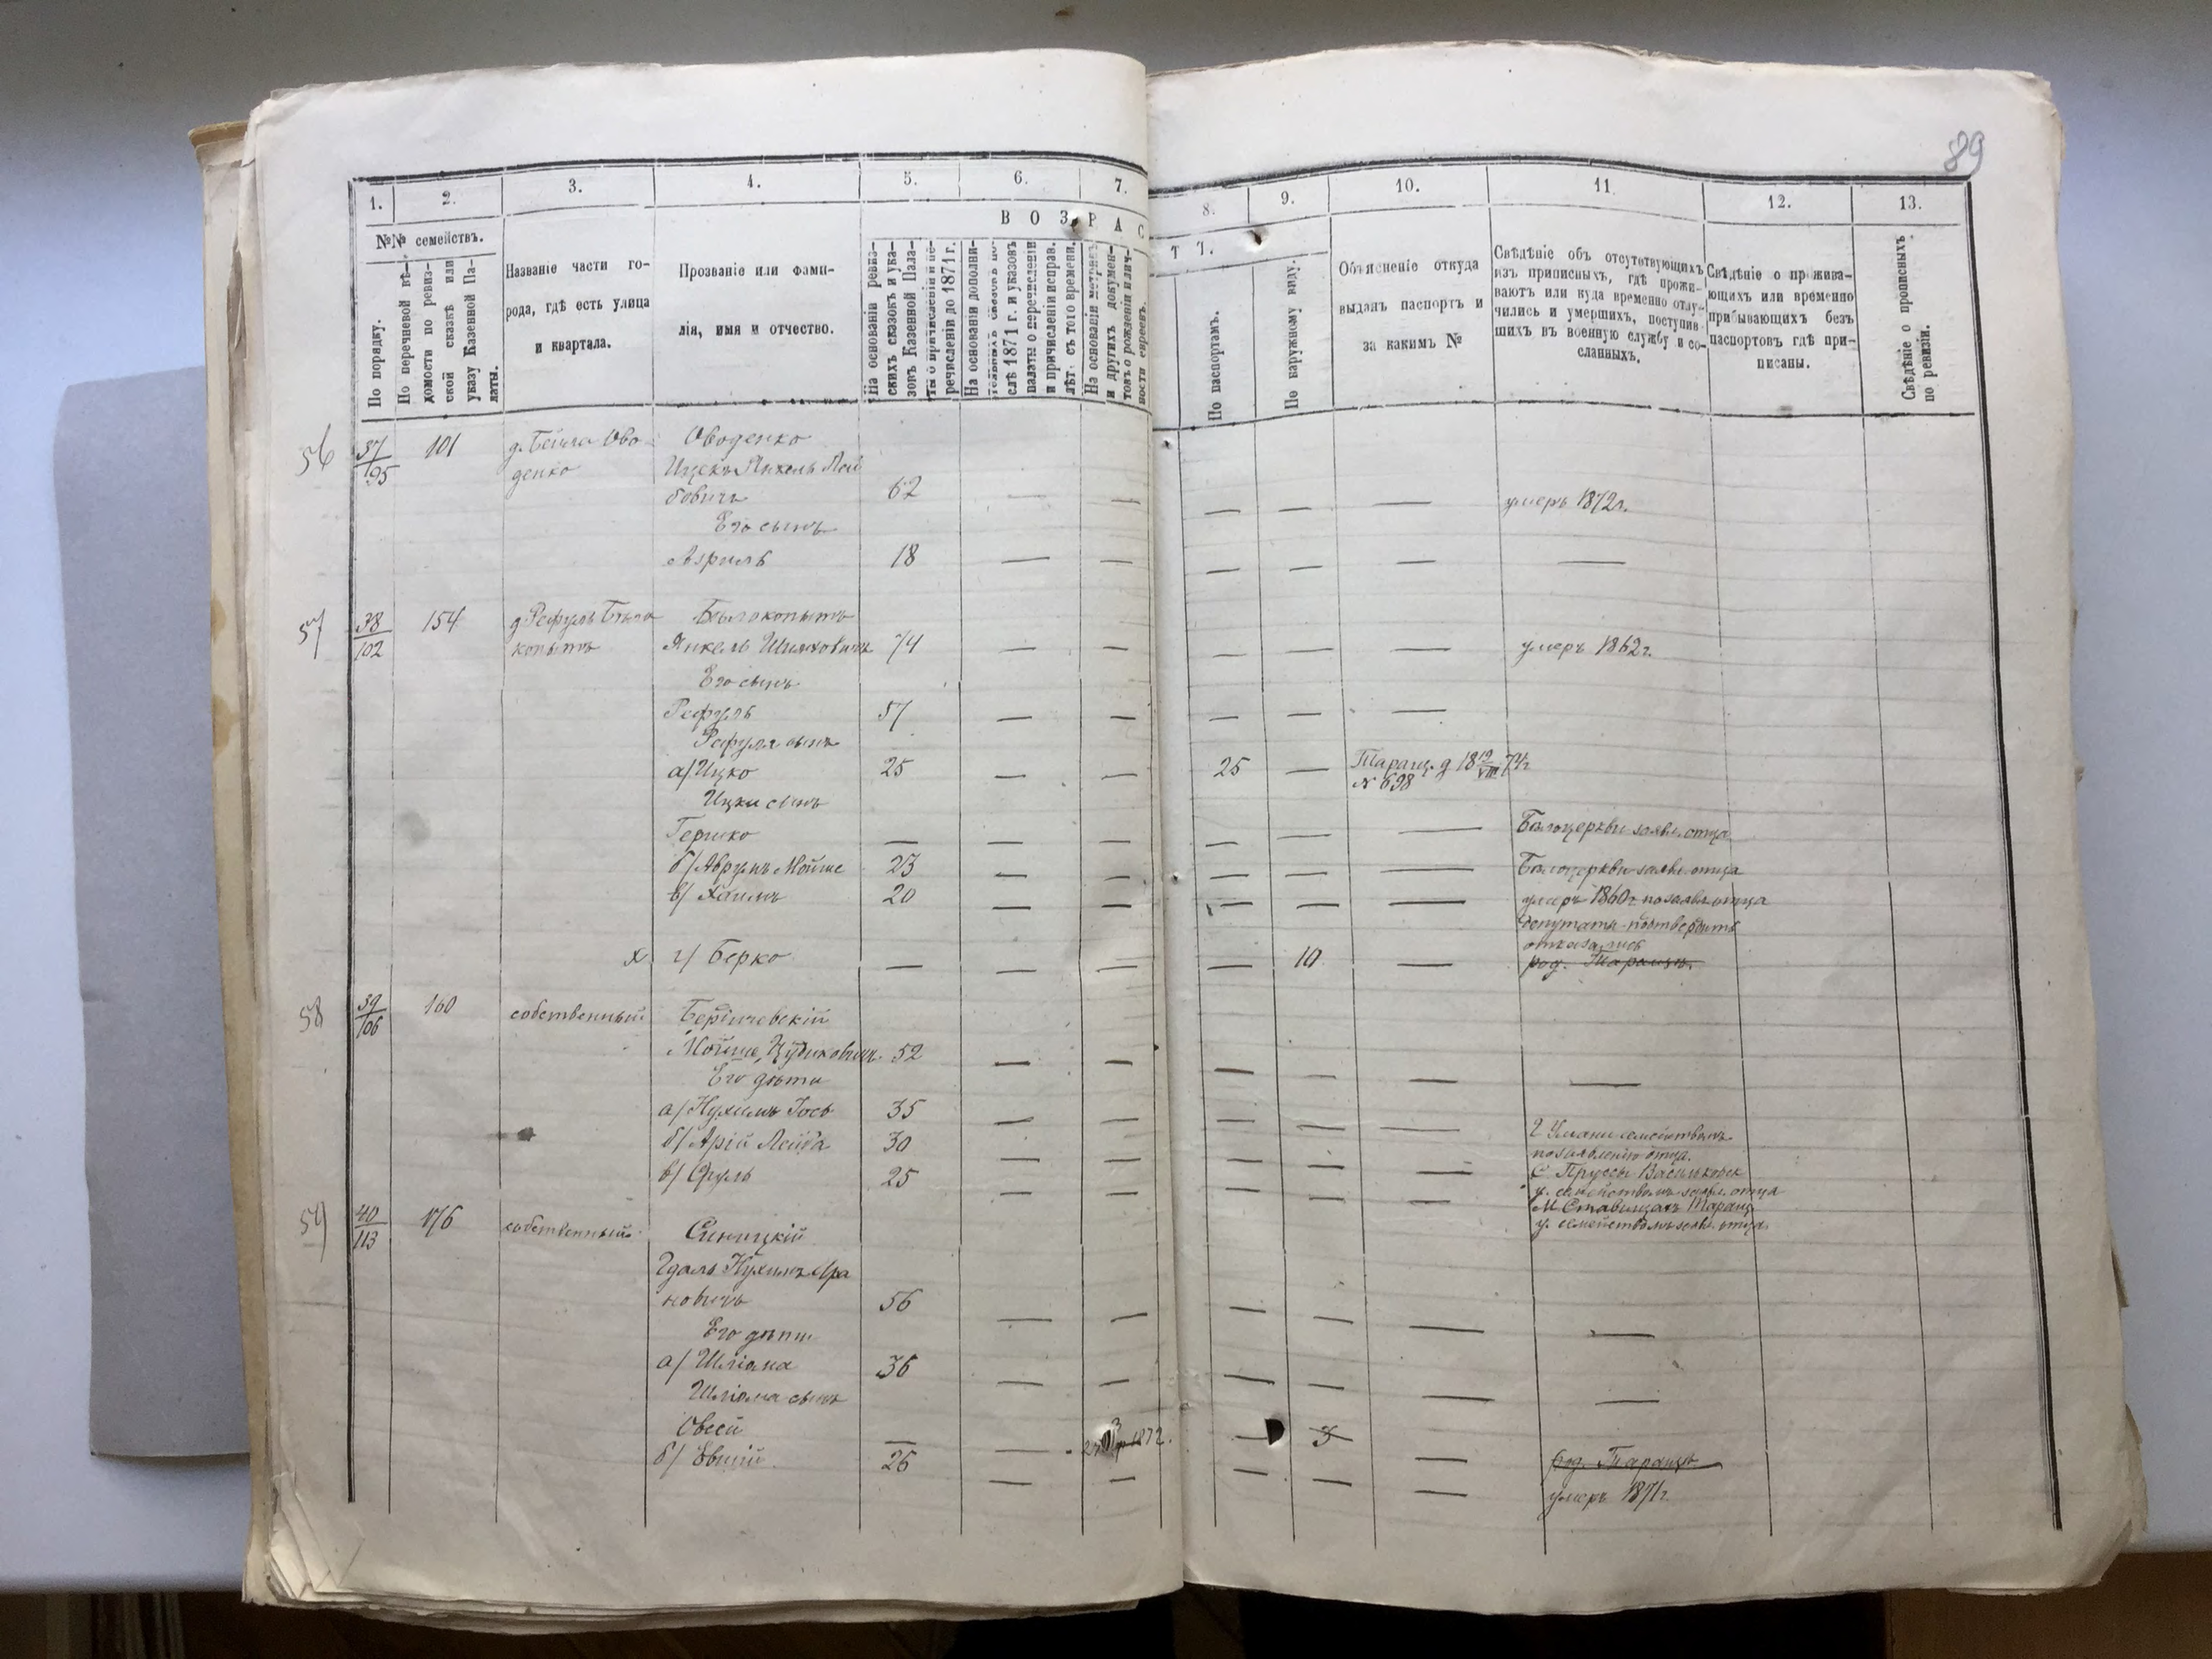 89
1.
2.
3.
4.
5.
6.
7.
8.
9.
10.
11.
12.
13.
ВОЗРАС
ТЪ.
№№ семействъ.
По порядку.
По перечневой вѣ-
домости по ревиз-
ской сказкѣ или
указу Казенной Па-
латы.
Названіе части го-
рода, гдѣ есть улица
и квартала.
Прозваніе или фами-
лія, имя и отчество.
На основаніи ревиз-
скихъ сказокъ и ука-
зовъ Казенной Пала-
ты о причисленіи и пе-
речисленіи до 1871 г.
На основаніи дополни-
тельныхъ сказокъ по-
слѣ 1871 г. и указовъ
палаты о перечисленіи
и причисленіи исправ.
лѣт. съ того времени.
На основаніи метрикъ
и другихъ докумен-
товъ о рожденіи и лич-
ности евреевъ.
По паспортамъ.
По наружному виду.
Объясненіе откуда
выданъ паспортъ и
за какимъ №
Свѣдѣніе объ отсутствующихъ
изъ приписныхъ, гдѣ прожи-
ваютъ или куда временно отлу-
чились и умершихъ, поступив-
шихъ въ военную службу и со-
сланныхъ.
Свѣдѣніе о прожива-
ющихъ или временно
прибывающихъ безъ
паспортовъ гдѣ при-
писаны.
Свѣдѣніе о прописныхъ
по ревизіи.
56 37/195 101 д. Бейла Ово- Оводенко
денко Ицекъ Янкель Лей
бовичъ 62 — — — — — умеръ 1872г.
Его сынъ
Азриль 18 — — — — — —
57 38/102 154 д. Рефуль Бѣло Бѣлокопытъ
копытъ Янкель Шимховичъ 74 — — — — — умеръ 1862г.
Его сынъ
Рефуль 57 — — — — —
Рефуля сынъ
а/ Ицко 25 — — 25 — Таращ. д 18 12/VIII 74г
№ 698
Ицки сынъ
Гершко — — — — — — Балоцеркви заявл. отца
б/ Аврумъ Мойше 23 — — — — — Балоцеркви заявл. отца
в/ Хаимъ 20 — — — — — умеръ 1860г. по заявл отца
депутаты подтвердить
отказались
х г/ Берко — — — — 10 — род. Таращѣ.
58 39/106 160 собственный Бердичевскій
Мойше Зудиковичъ 52 — — — — — —
Его дѣти
а/ Нухимъ Іось 35 — — — — — Г Умани семействомъ
по заявленію отца.
б/ Арій Лейба 30 — — — — — С Пруссы Васильковск
у. семействомъ заявл. отца
в/ Сруль 25 — — — — — М Ставищахъ Таращ
у. семействомъ заявл. отца
59 40/113 176 собственный Синицкій
Гдаль Нухимъ Ара
новичъ 56 — — — — — —
Его дѣти
а/ Шліома 36 — — — — — —
Шліома сынъ
Овсей — — 1872. — 3 — род. Таращѣ
б/ Евший 26 — — — — — умеръ 1871г.